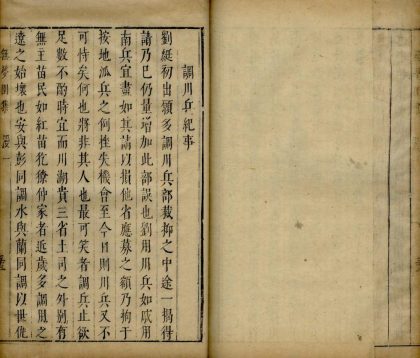 調川兵紀事
劉綎初出領多調川兵部裁抑之中途一揭得
請乃已仍量增加此部誤也劉用川兵如戚用
南兵宜盡如其請以損他省應募之額乃拘于
按地派兵之例挫失機會至今日則川兵又不
可恃矣何也將非其人也最可笑者調兵止飲
足數不酌時宜而川湖貴三省土司之外別有
無主苗民如紅苗犵獠仲家者近歲多調用之
遼之始壞也安與彭同調水與藺同調以世仇
無夢園集
漫一